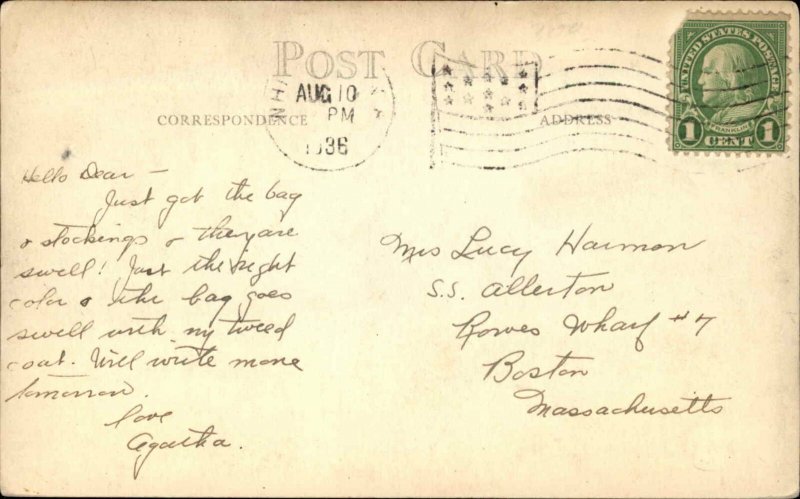 POST CARD
AUG 10
PM
1936
CORRESPONDENCE
ADDRESS
UNITED STATES POSTAGE
FRANKLIN
1 CENT 1
Hello Dear —
Just got the bag
& stockings & they are
swell! Just the right
color & the bag goes
swell with my tweed
coat. Will write more
tomorrow.
Love
Agatha.
Mrs Lucy Harmon
S.S. Allerton
Rowes Wharf #7
Boston
Massachusetts